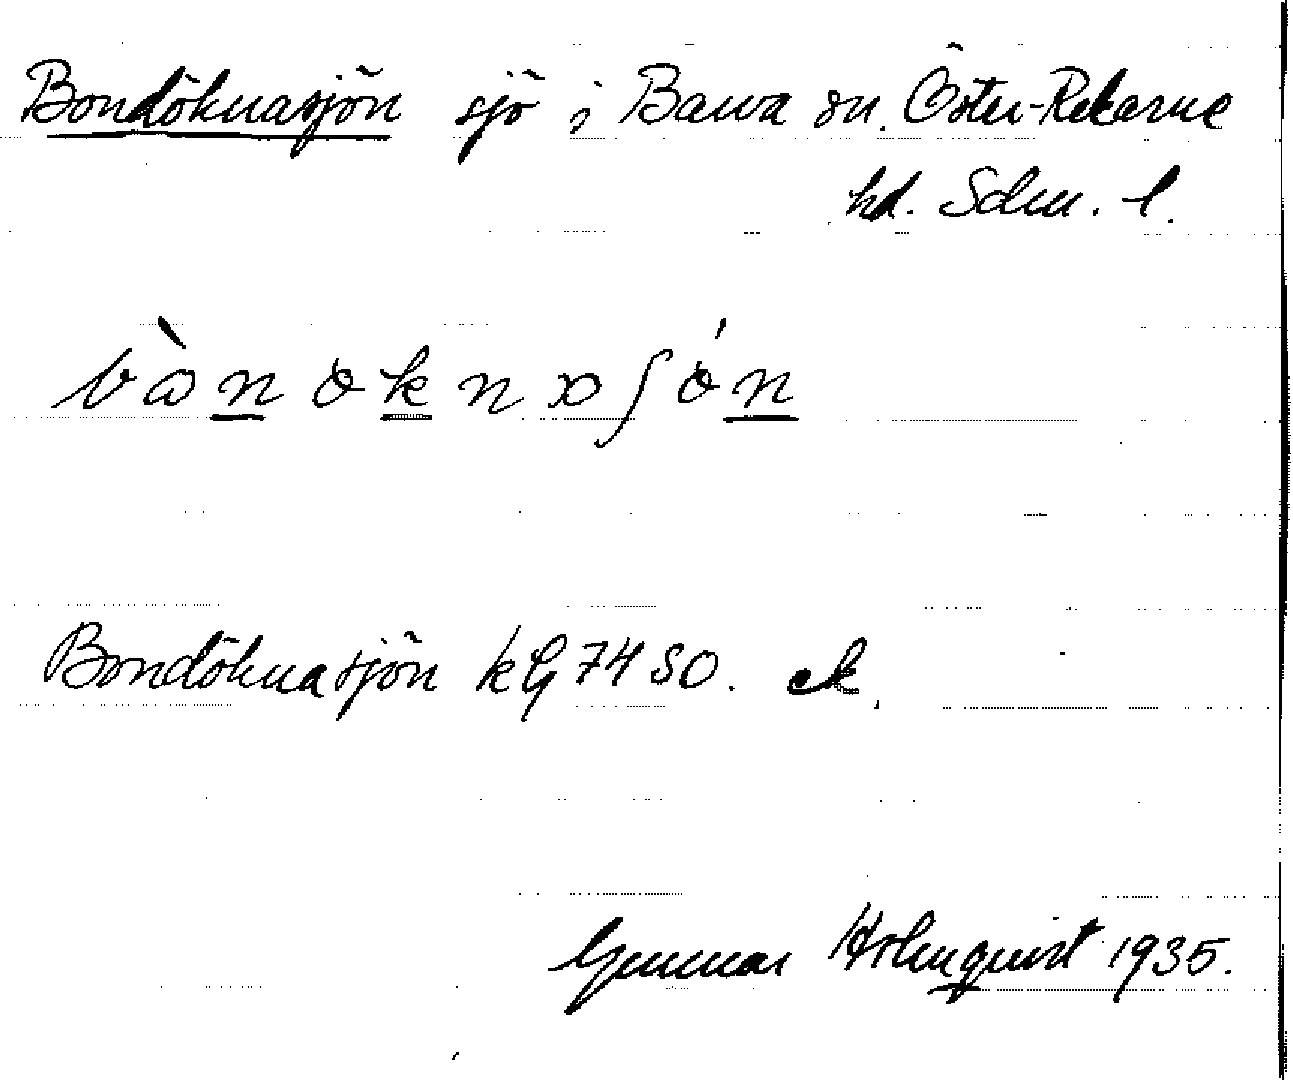 Bondöknasjön sjö i Barva sn. Öster-Rekarne
hd. Sdm. l.
Bondöknasjön KG 74 SO. ek.
Gunnar Holmquist 1935.